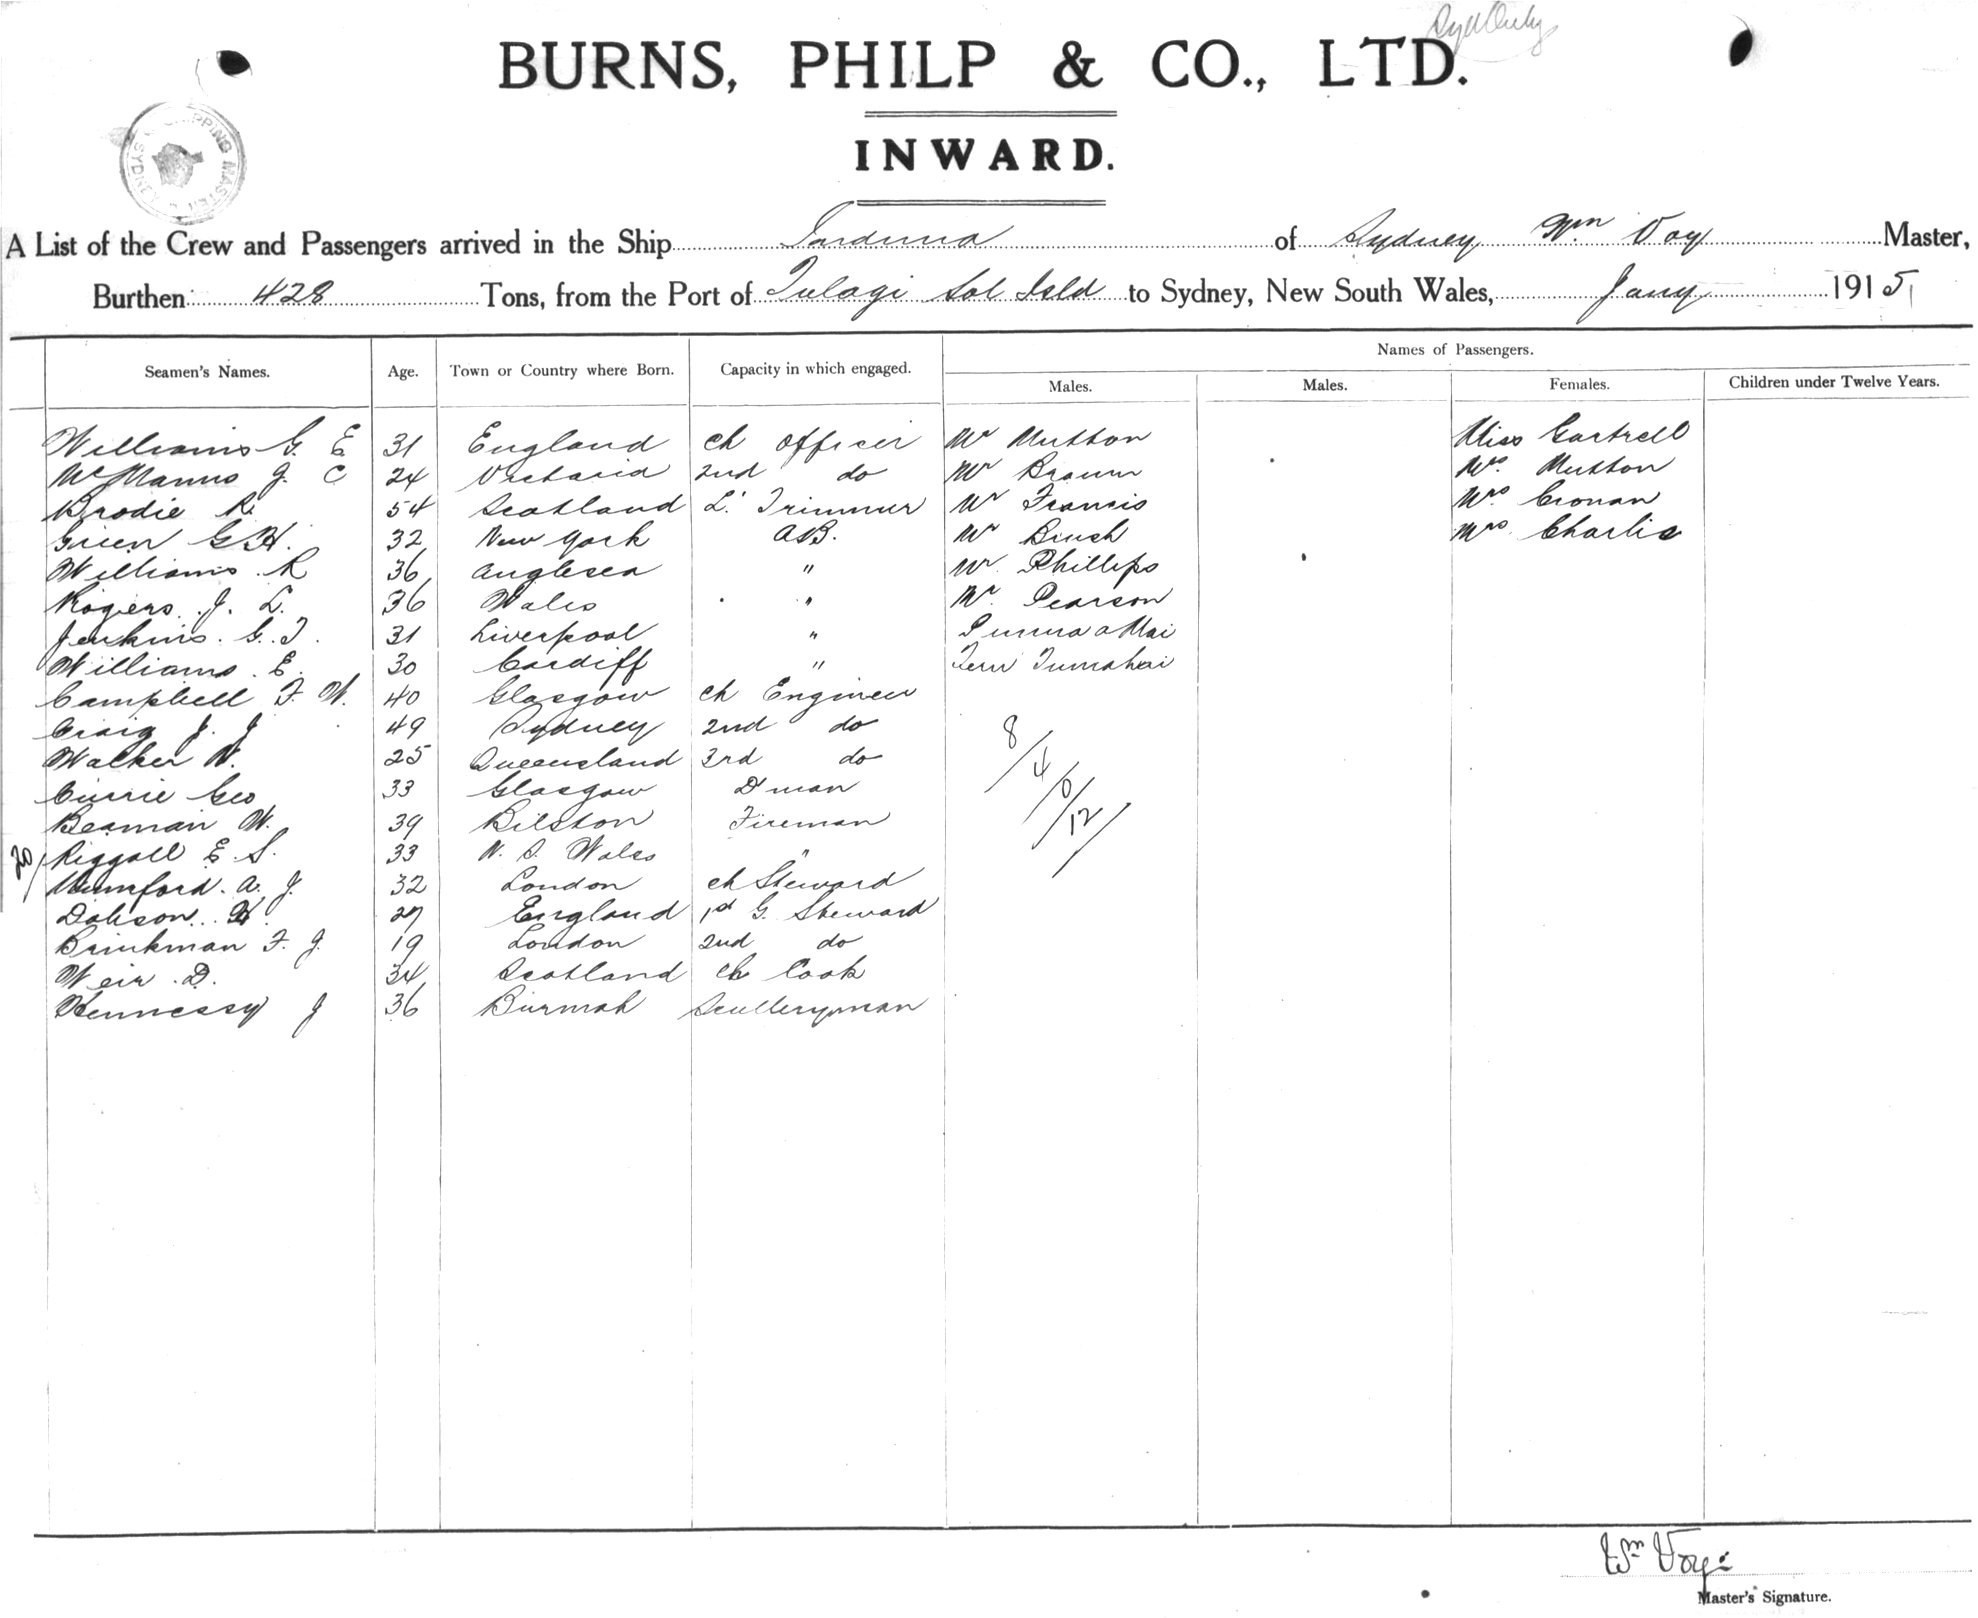 BURNS, PHILP & CO., LTD.
INWARD.
SHIPPING MASTER SYDNEY
A List of the Crew and Passengers arrived in the Ship Induna of Sydney Wm Voy Master,
Burthen 428 Tons, from the Port of Tulagi Sol Isld to Sydney, New South Wales, Jany 1915
Names of Passengers.
Seamen's Names. Age. Town or Country where Born. Capacity in which engaged. Males. Males. Females. Children under Twelve Years.
Williams G. E 31 England ch Officer Mr Mutton Miss Gartrell
McManus J. C 24 Victoria 2nd do Mr Braun Mrs. Mutton
Brodie R. 54 Scotland L. Trimmer Mr Francis Mrs. Cronan
Green G H. 32 New York AB. Mr Bruch Mrs Charlie
Williams R 36 Anglesea " Mr. Phillips
Rogers. J. L. 36 Wales " Mr. Pearson
Jenkins. G. T. 31 Liverpool "
Williams. E. 30 Cardiff " Tumahai
Campbell F. W. 40 Glasgow ch Engineer
Craig J. J 49 Sydney 2nd do
Walker W. 25 Queensland 3rd do
Currie Geo 33 Glasgow D'man
Beaman W. 39 Bilston Fireman
Riggall E. S. 33 N. S. Wales "
Mumford. A. J. 32 London ch Steward
Dobson. H. 27 England 1st G. Steward
Brinkman F. J. 19 London 2nd do
Weir. D. 34 Scotland ch Cook
Hennessy J 36 Burmah Sculleryman
20/
8/4/0/12/
Wm Voy
Master's Signature.